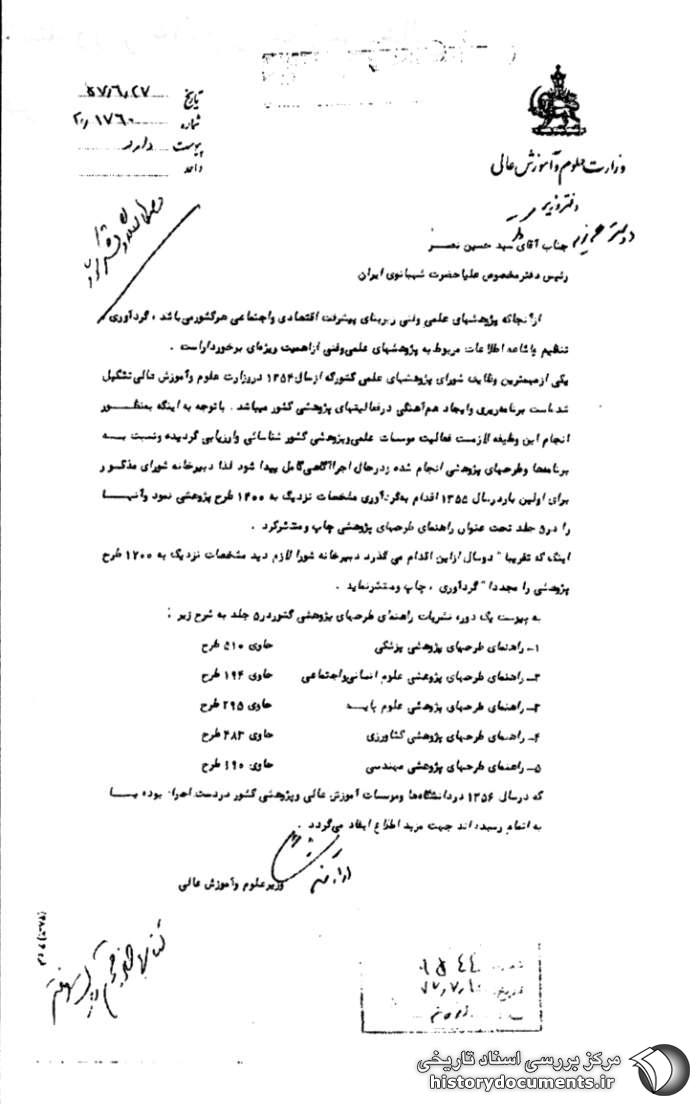 تاریخ ۵۷/۶/۲۷
شماره ۲۰/۱۷۶۰
پیوست دارد
واحد
وزارت علوم و آموزش عالی
دفتر وزیر
دوست عزیزم
جناب آقای سید حسین نصر
رئیس دفتر مخصوص علیاحضرت شهبانوی ایران
از آنجا که پژوهشهای علمی وفنی زیربنای پیشرفت اقتصادی واجتماعی هرکشورمی‌باشد ، گردآوری
تنظیم واشاعه اطلاعات مربوط به پژوهشهای علمی‌وفنی ازاهمیت ویژه‌ای برخورداراست .
یکی ازمهمترین وظایف شورای پژوهشهای علمی کشورکه ازسال ۱۳۵۴ دروزارت علوم وآموزش عالی‌تشکیل
شده‌است برنامه‌ریزی وایجاد هم‌آهنگی درفعالیتهای پژوهشی کشور میباشد . باتوجه به اینکه بمنظــور
انجام این وظیفه لازمست فعالیت موسسات علمی‌وپژوهشی کشور شناسائی وارزیابی گردیده ونسبت بــه
برنامه‌ها وطرحهای پژوهشی انجام شده ودرحال اجراآگاهی‌کامل پیدا شود لذا دبیرخانه شورای مذکــور
برای اولین باردرسال ۱۳۵۵ اقدام به‌گردآوری مشخصات نزدیک به ۱۴۰۰ طرح پژوهشی نمود وآنهــا
را در۵ جلد تحت عنوان راهنمای طرحهای پژوهشی چاپ ومنتشرکرد .
اینک که تقریبا" دوسال ازاین اقدام می گذرد دبیرخانه شورا لازم دید مشخصات نزدیک به ۱۷۰۰ طرح
پژوهشی را مجددا" گردآوری ، چاپ ومنتشرنماید .
به پیوست یک دوره نشریات راهنمای طرحهای پژوهشی کشوردر۵ جلد به شرح زیر :
۱ــ راهنمای طرحهای پژوهشی پزشکی حاوی ۵۱۰ طرح
۲ــ راهنمای طرحهای پژوهشی علوم انسانی‌واجتماعی حاوی ۱۹۴ طرح
۳ــ راهنمای طرحهای پژوهشی علوم پایــه حاوی ۲۹۵ طرح
۴ــ راهنمای طرحهای پژوهشی کشاورزی حاوی ۴۸۳ طرح
۵ــ راهنمای طرحهای پژوهشی مهندسی حاوی ۱۹۰ طرح
که درسال ۱۳۵۶ دردانشگاه‌ها وموسسات آموزش عالی وپژوهشی کشور دردست اجراء بوده یــا
به اتمام رسیده‌اند جهت مزید اطلاع ایفاد می‌گردد .
ارادتمند
وزیرعلوم وآموزش عالی
شماره
تاریخ
مرکز بررسی اسناد تاریخی
historydocuments.ir